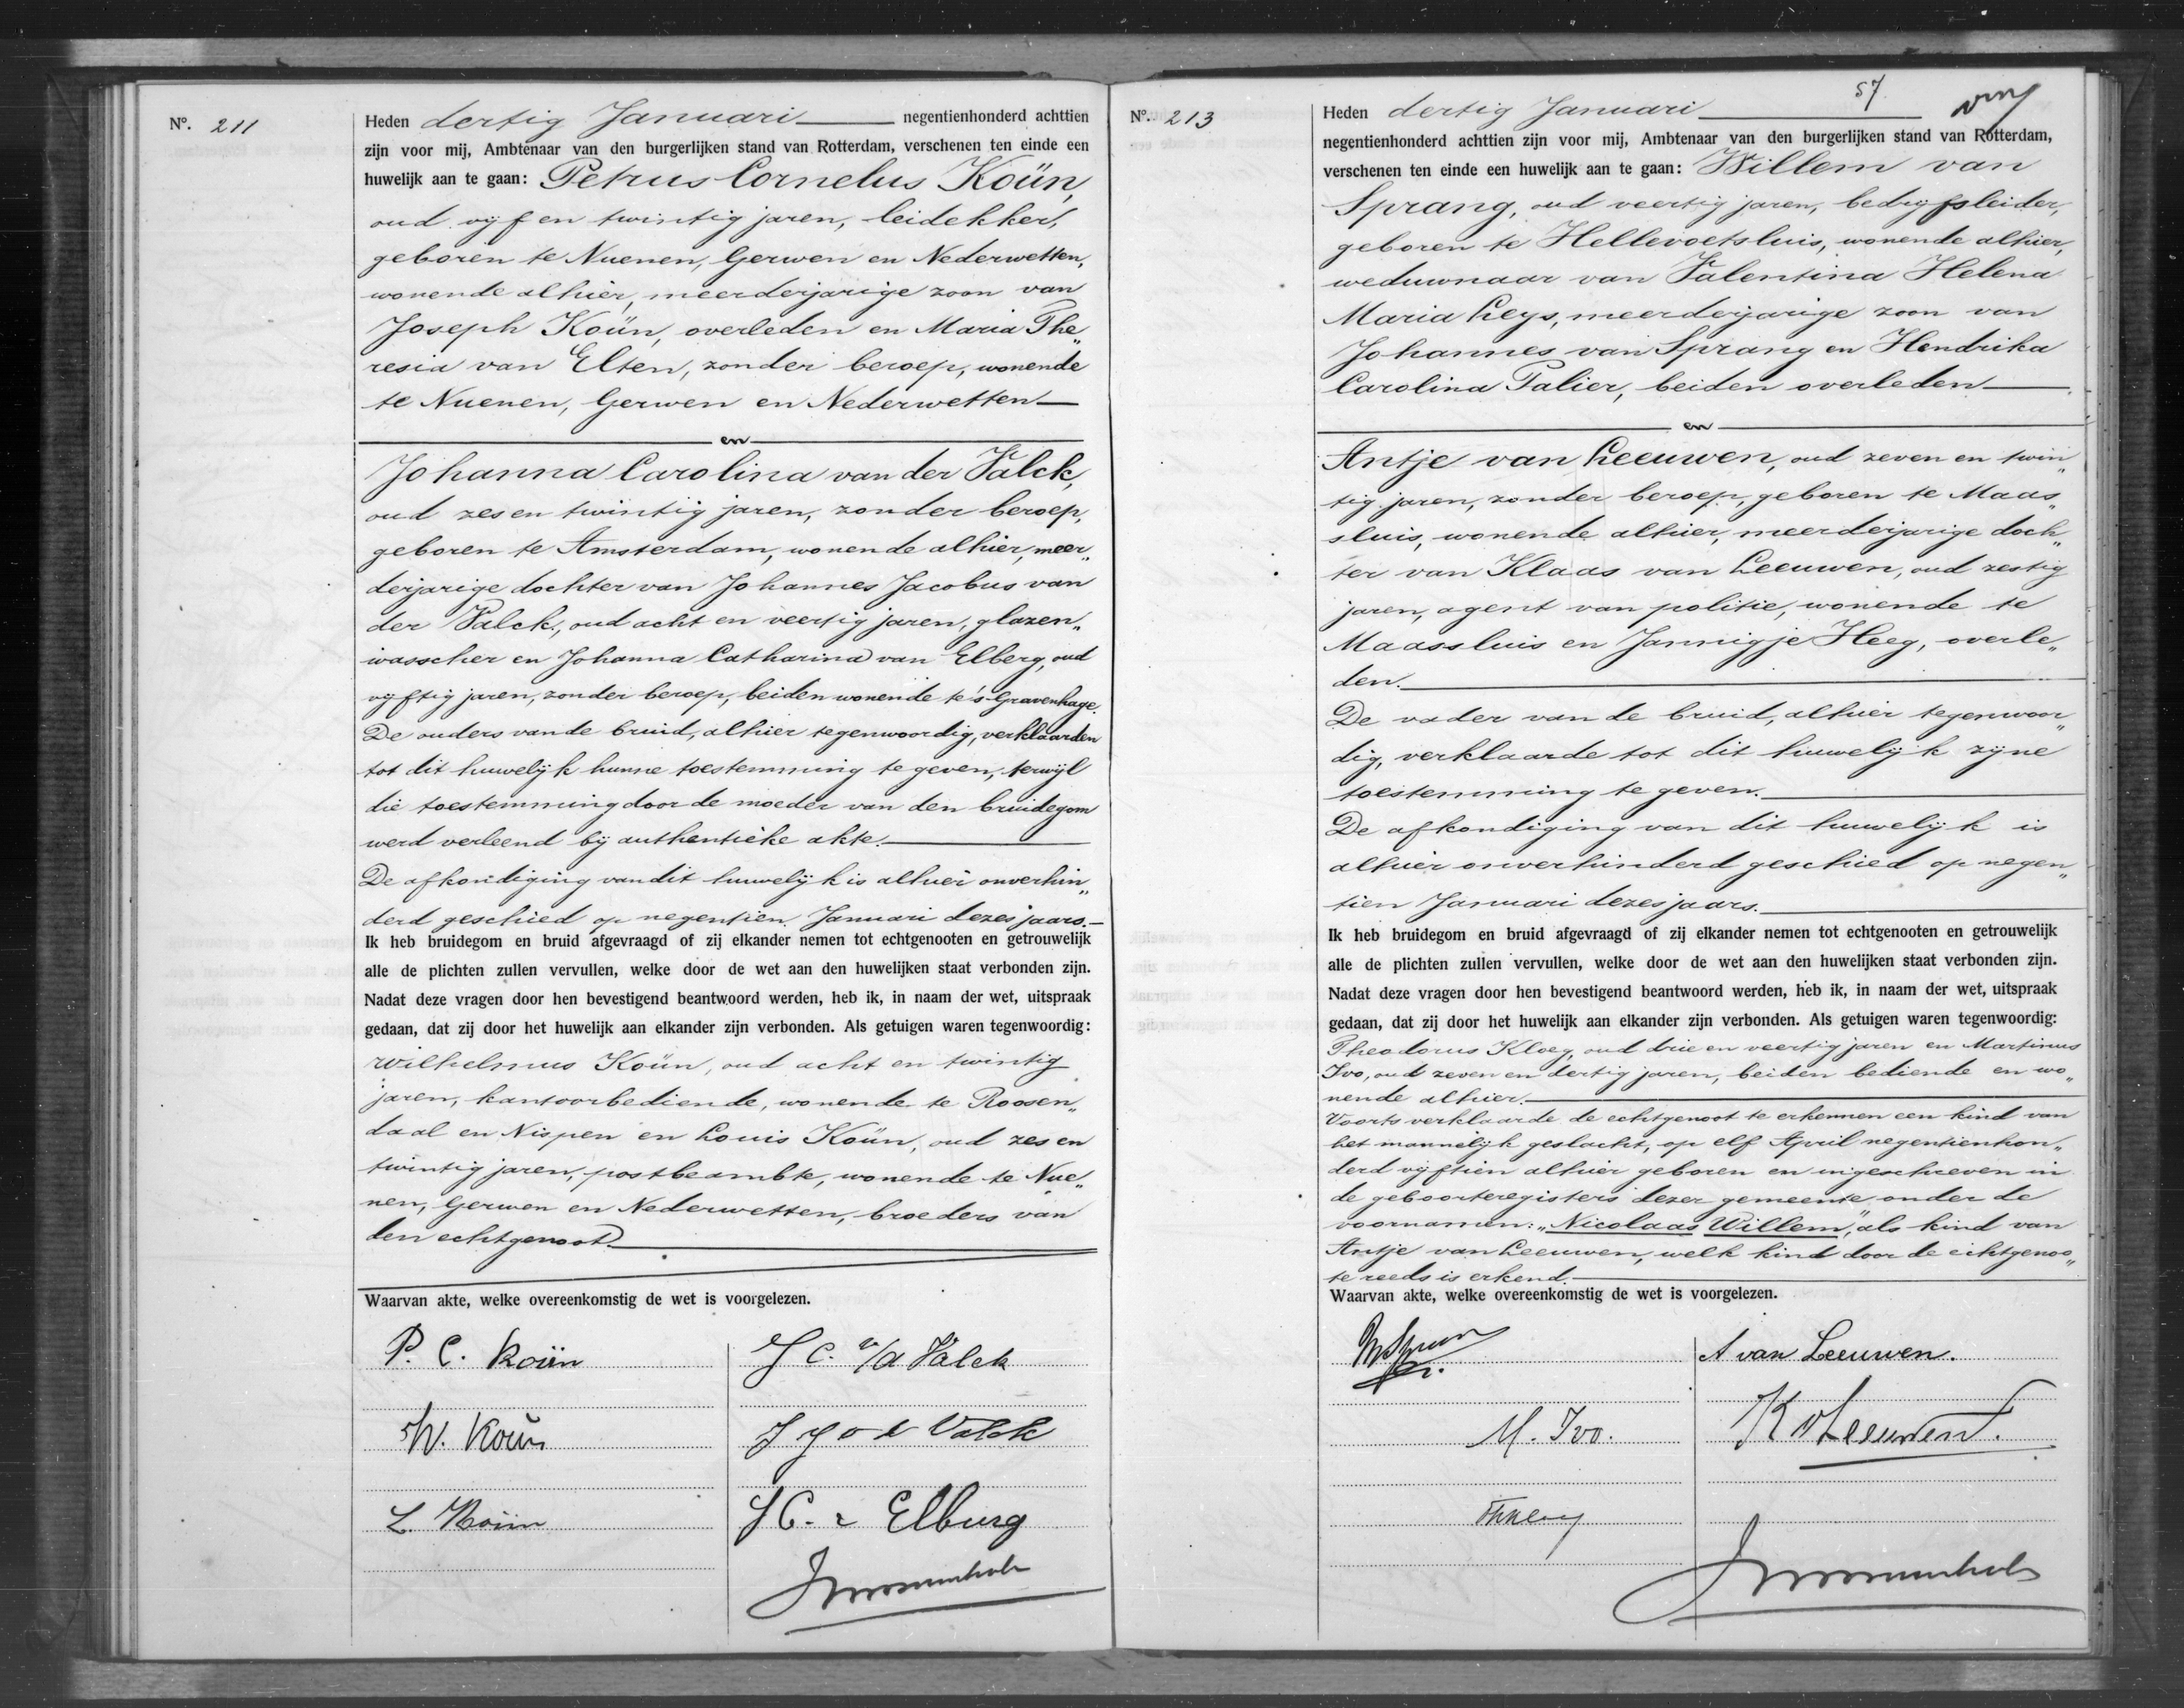 Nº. 211
Heden dertig Januari negentienhonderd achttien
zijn voor mij, Ambtenaar van den burgerlijken stand van Rotterdam, verschenen ten einde een
huwelijk aan te gaan: Petrus Cornelus Koün,
oud vijf en twintig jaren, leidekker,
geboren te Nuenen, Gerwen en Nederwetten,
wonende alhier, meerderjarige zoon van
Joseph Koün, overleden en Maria The„
resia van Elten, zonder beroep, wonende
te Nuenen, Gerwen en Nederwetten
en
Johanna Carolina van der Valck,
oud zes en twintig jaren, zonder beroep,
geboren te Amsterdam, wonende alhier, meer„
derjarige dochter van Johannes Jacobus van
der Valck, oud acht en veertig jaren, glazen„
wasscher en Johanna Catharina van Elberg, oud
vijftig jaren, zonder beroep, beiden wonende te 's-Gravenhage.
De ouders van de bruid, alhier tegenwoordig, verklaarden
tot dit huwelijk hunne toestemming te geven, terwijl
die toestemming door de moeder van den bruidegom
werd verleend bij authentieke akte.
De afkondiging van dit huwelijk is alhier onverhin„
derd geschied op negentien Januari dezes jaars.
Ik heb bruidegom en bruid afgevraagd of zij elkander nemen tot echtgenooten en getrouwelijk
alle de plichten zullen vervullen, welke door de wet aan den huwelijken staat verbonden zijn.
Nadat deze vragen door hen bevestigend beantwoord werden, heb ik, in naam der wet, uitspraak
gedaan, dat zij door het huwelijk aan elkander zijn verbonden. Als getuigen waren tegenwoordig:
Wilhelmus Koün, oud acht en twintig
jaren, kantoorbediende, wonende te Roosen„
daal en Nispen en Louis Koün, oud zes en
twintig jaren, postbeambte, wonende te Nue„
nen, Gerwen en Nederwetten, broeders van
den echtgenoot.
Waarvan akte, welke overeenkomstig de wet is voorgelezen.
P. C. Koün
J C. v/d Valck
W. Koün
J J v d Valck
L. Koün
J C. v Elburg
Nº. 213
57
Heden dertig Januari
negentienhonderd achttien zijn voor mij, Ambtenaar van den burgerlijken stand van Rotterdam,
verschenen ten einde een huwelijk aan te gaan: Willem van
Sprang, oud veertig jaren, bedrijfsleider,
geboren te Hellevoetsluis, wonende alhier,
weduwnaar van Valentina Helena
Maria Leys, meerderjarige zoon van
Johannes van Sprang en Hendrika
Carolina Palier, beiden overleden
en
Antje van Leeuwen, oud zeven en twin„
tig jaren, zonder beroep, geboren te Maas„
sluis, wonende alhier, meerderjarige doch„
ter van Klaas van Leeuwen, oud zestig
jaren, agent van politie, wonende te
Maassluis en Jannigje Heeg, overle„
den.
De vader van de bruid, alhier tegenwoor„
dig, verklaarde tot dit huwelijk zijne
toestemming te geven.
De afkondiging van dit huwelijk is
alhier onverhinderd geschied op negen„
tien Januari dezes jaars.
Ik heb bruidegom en bruid afgevraagd of zij elkander nemen tot echtgenooten en getrouwelijk
alle de plichten zullen vervullen, welke door de wet aan den huwelijken staat verbonden zijn.
Nadat deze vragen door hen bevestigend beantwoord werden, heb ik, in naam der wet, uitspraak
gedaan, dat zij door het huwelijk aan elkander zijn verbonden. Als getuigen waren tegenwoordig:
Theodorus Kloeg, oud drie en veertig jaren en Martinus
Ivo, oud zeven en dertig jaren, beiden bediende en wo„
nende alhier.
Voorts verklaarde de echtgenoot te erkennen een kind van
het mannelijk geslacht, op elf April negentienhon„
derd vijftien alhier geboren en ingeschreven in
de geboorteregisters dezer gemeente onder de
voornamen: „Nicolaas Willem", als kind van
Antje van Leeuwen, welk kind door de echtgenoo„
te reeds is erkend.
Waarvan akte, welke overeenkomstig de wet is voorgelezen.
A van Leeuwen.
M. Ivo.
K v Leeuwen.